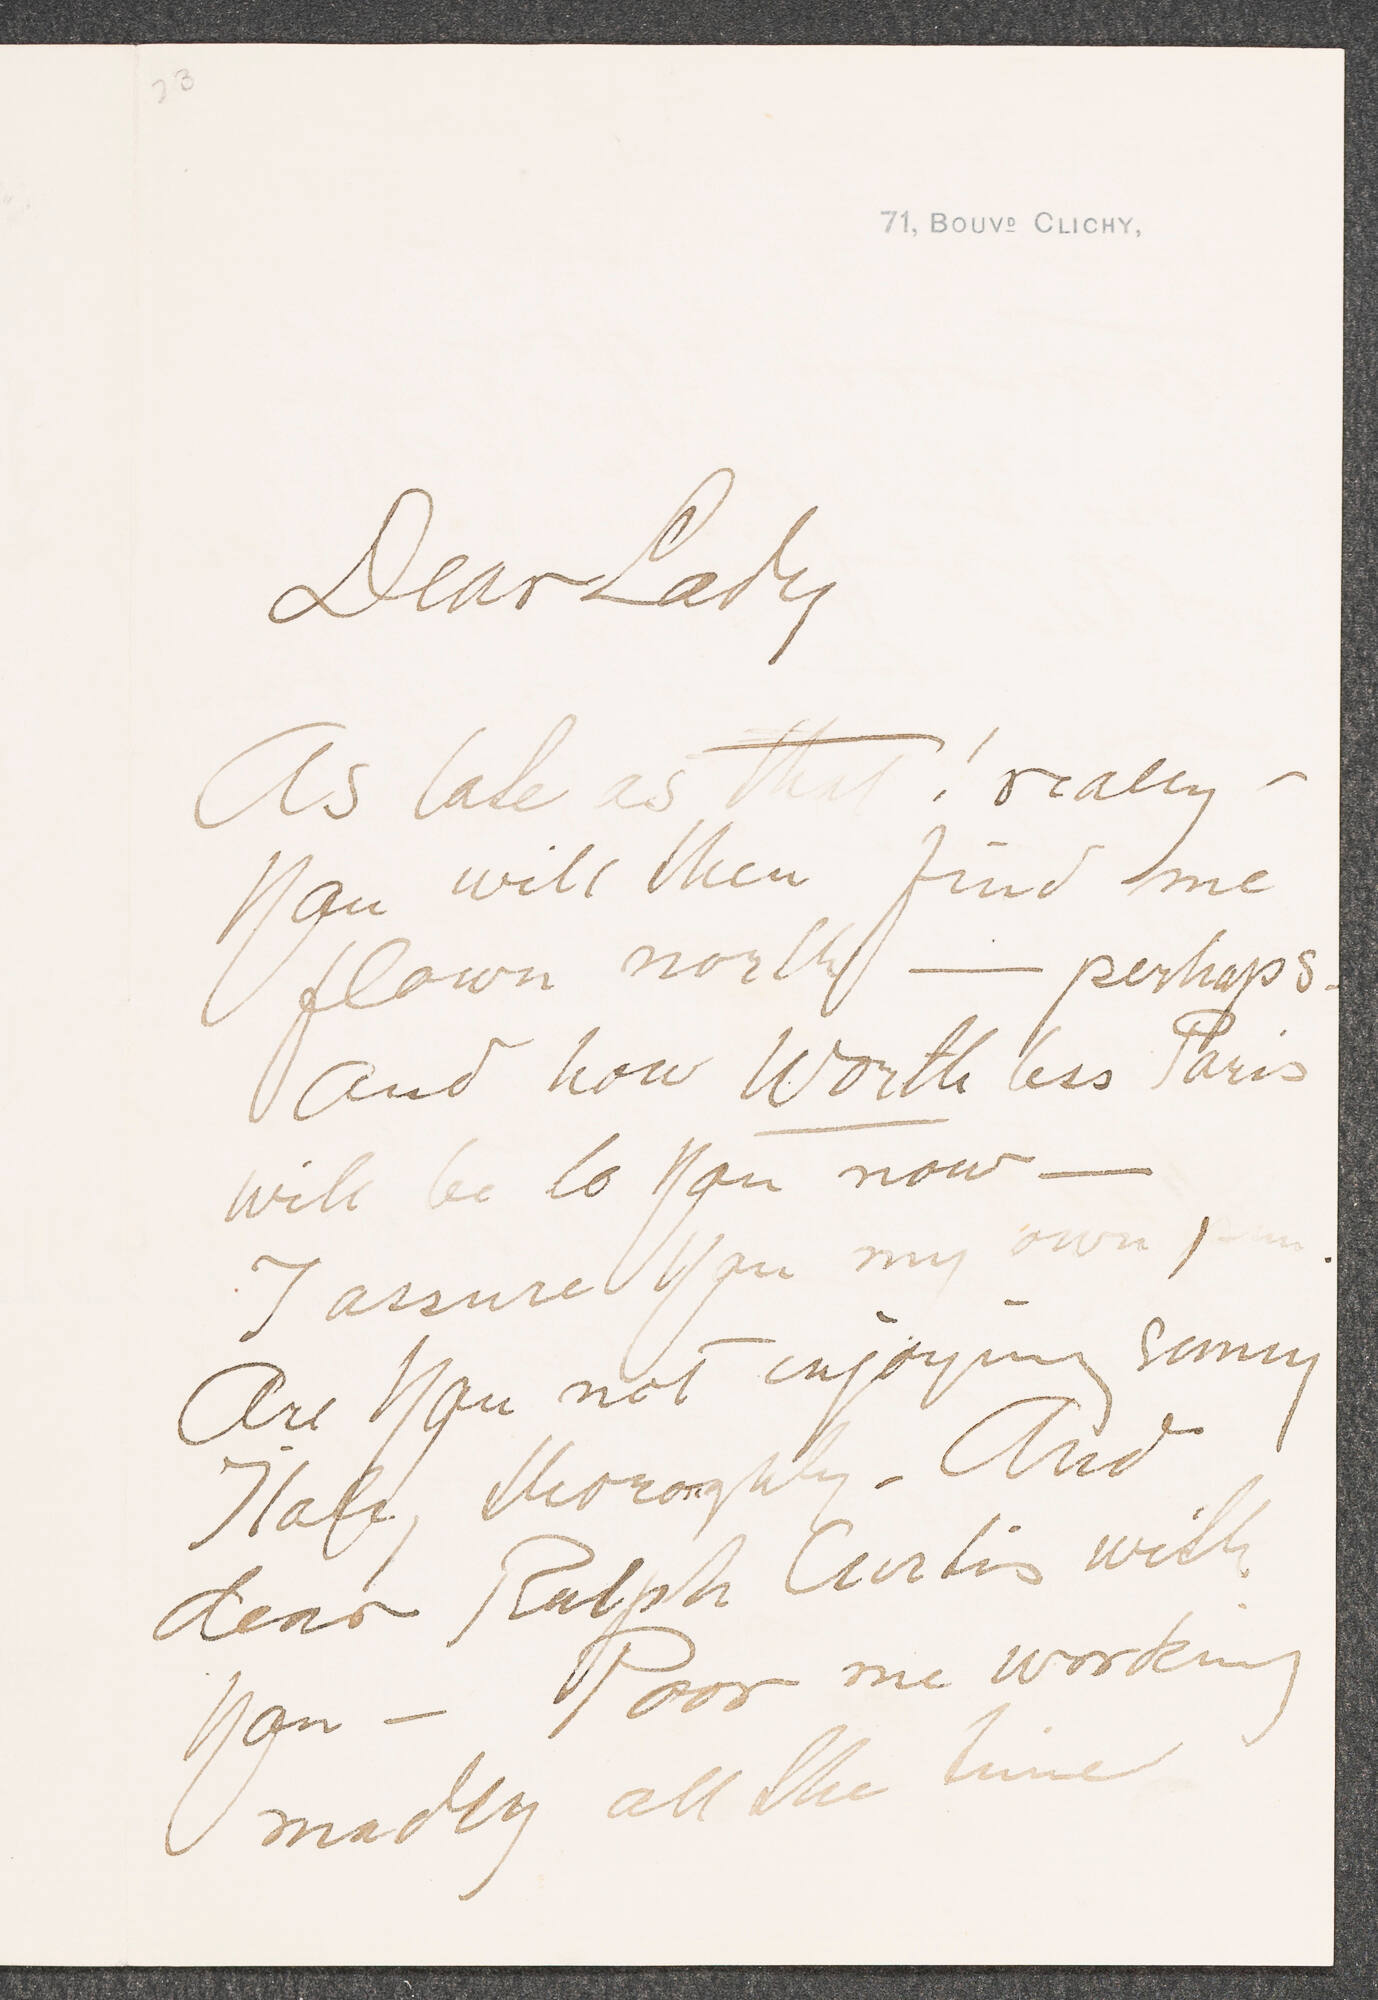 23
71, BOUVD CLICHY,
Dear Lady
As late as that! really –
You will then find me
flown north — perhaps.
And how Worth less Paris
will be to you now —
I assure you my own pun.
Are you not enjoying sunny
Italy, thoroughly. And
dear Ralph Curtis with
you – Poor me working
madly all the time